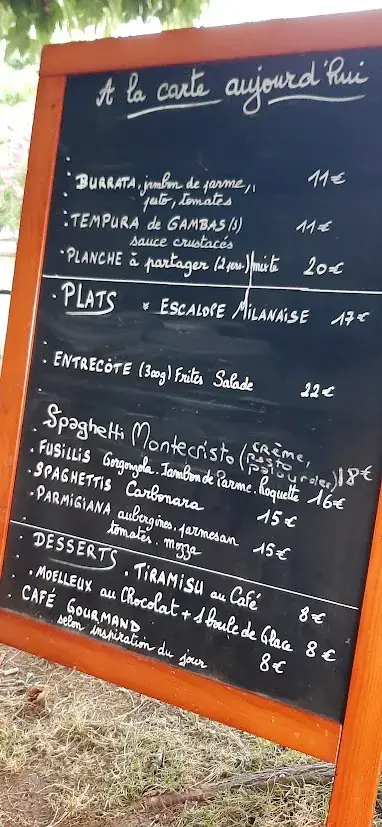 A la carte aujourd'hui
• BURRATA, jambon de parme, 11€
pesto, tomates
• TEMPURA de GAMBAS (5) 11€
sauce crustacés
• PLANCHE à partager (2 pers.) mixte 20€
• PLATS * ESCALOPE MILANAISE 17€
• ENTRECÔTE (300g) Frites Salade 22€
Spaghetti Montecristo (CRÈME, Pesto 18€
• FUSILLIS Gorgonzola. Jambon de Parme. Roquette 16€
• SPAGHETTIS Carbonara 15€
• PARMIGIANA aubergines. parmesan 15€
tomates. mozza
• DESSERTS • TIRAMISU au Café 8€
• MOELLEUX au Chocolat + 1 boule de Glace 8€
• CAFÉ GOURMAND 8€
selon inspiration du jour